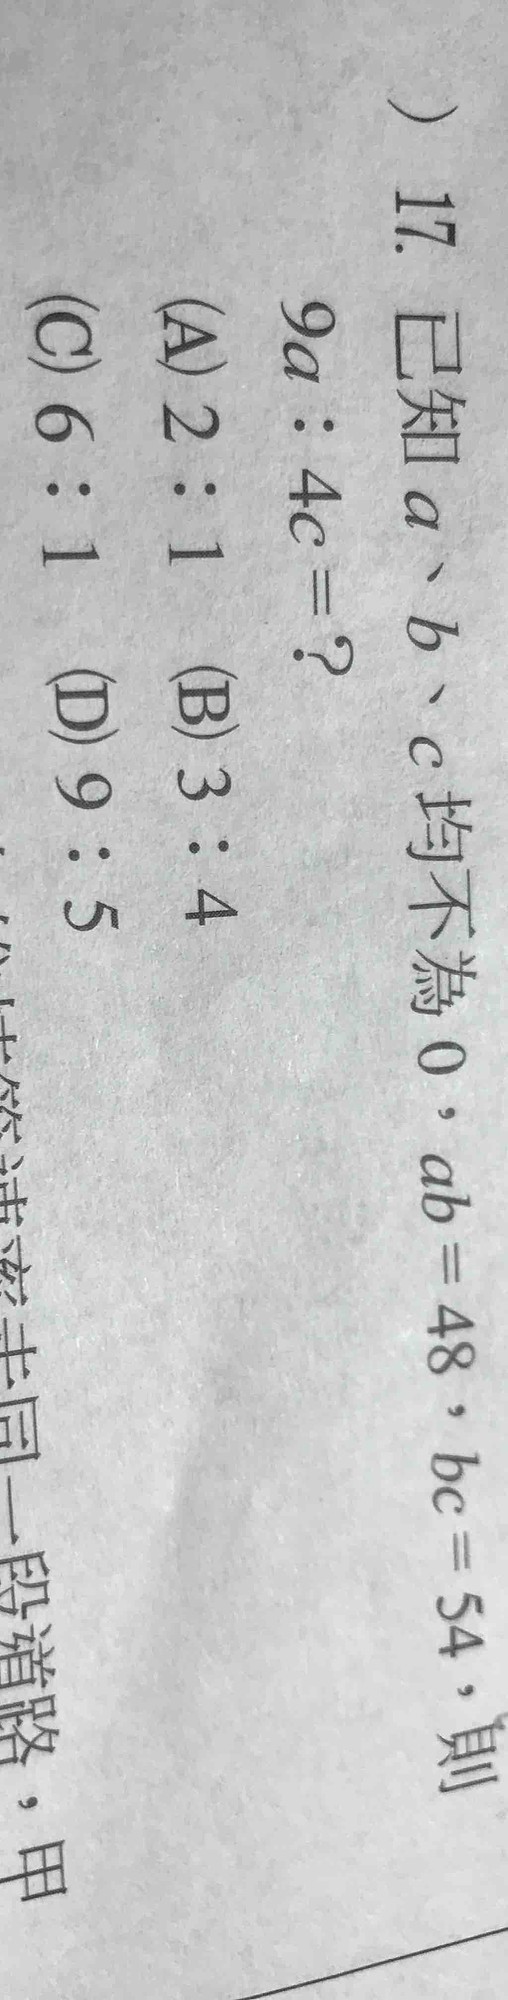 ）17. 已知 a、b、c 均不為 0，ab＝48，bc＝54，則
9a：4c＝？
(A) 2：1　(B) 3：4
(C) 6：1　(D) 9：5
同一段道路，甲